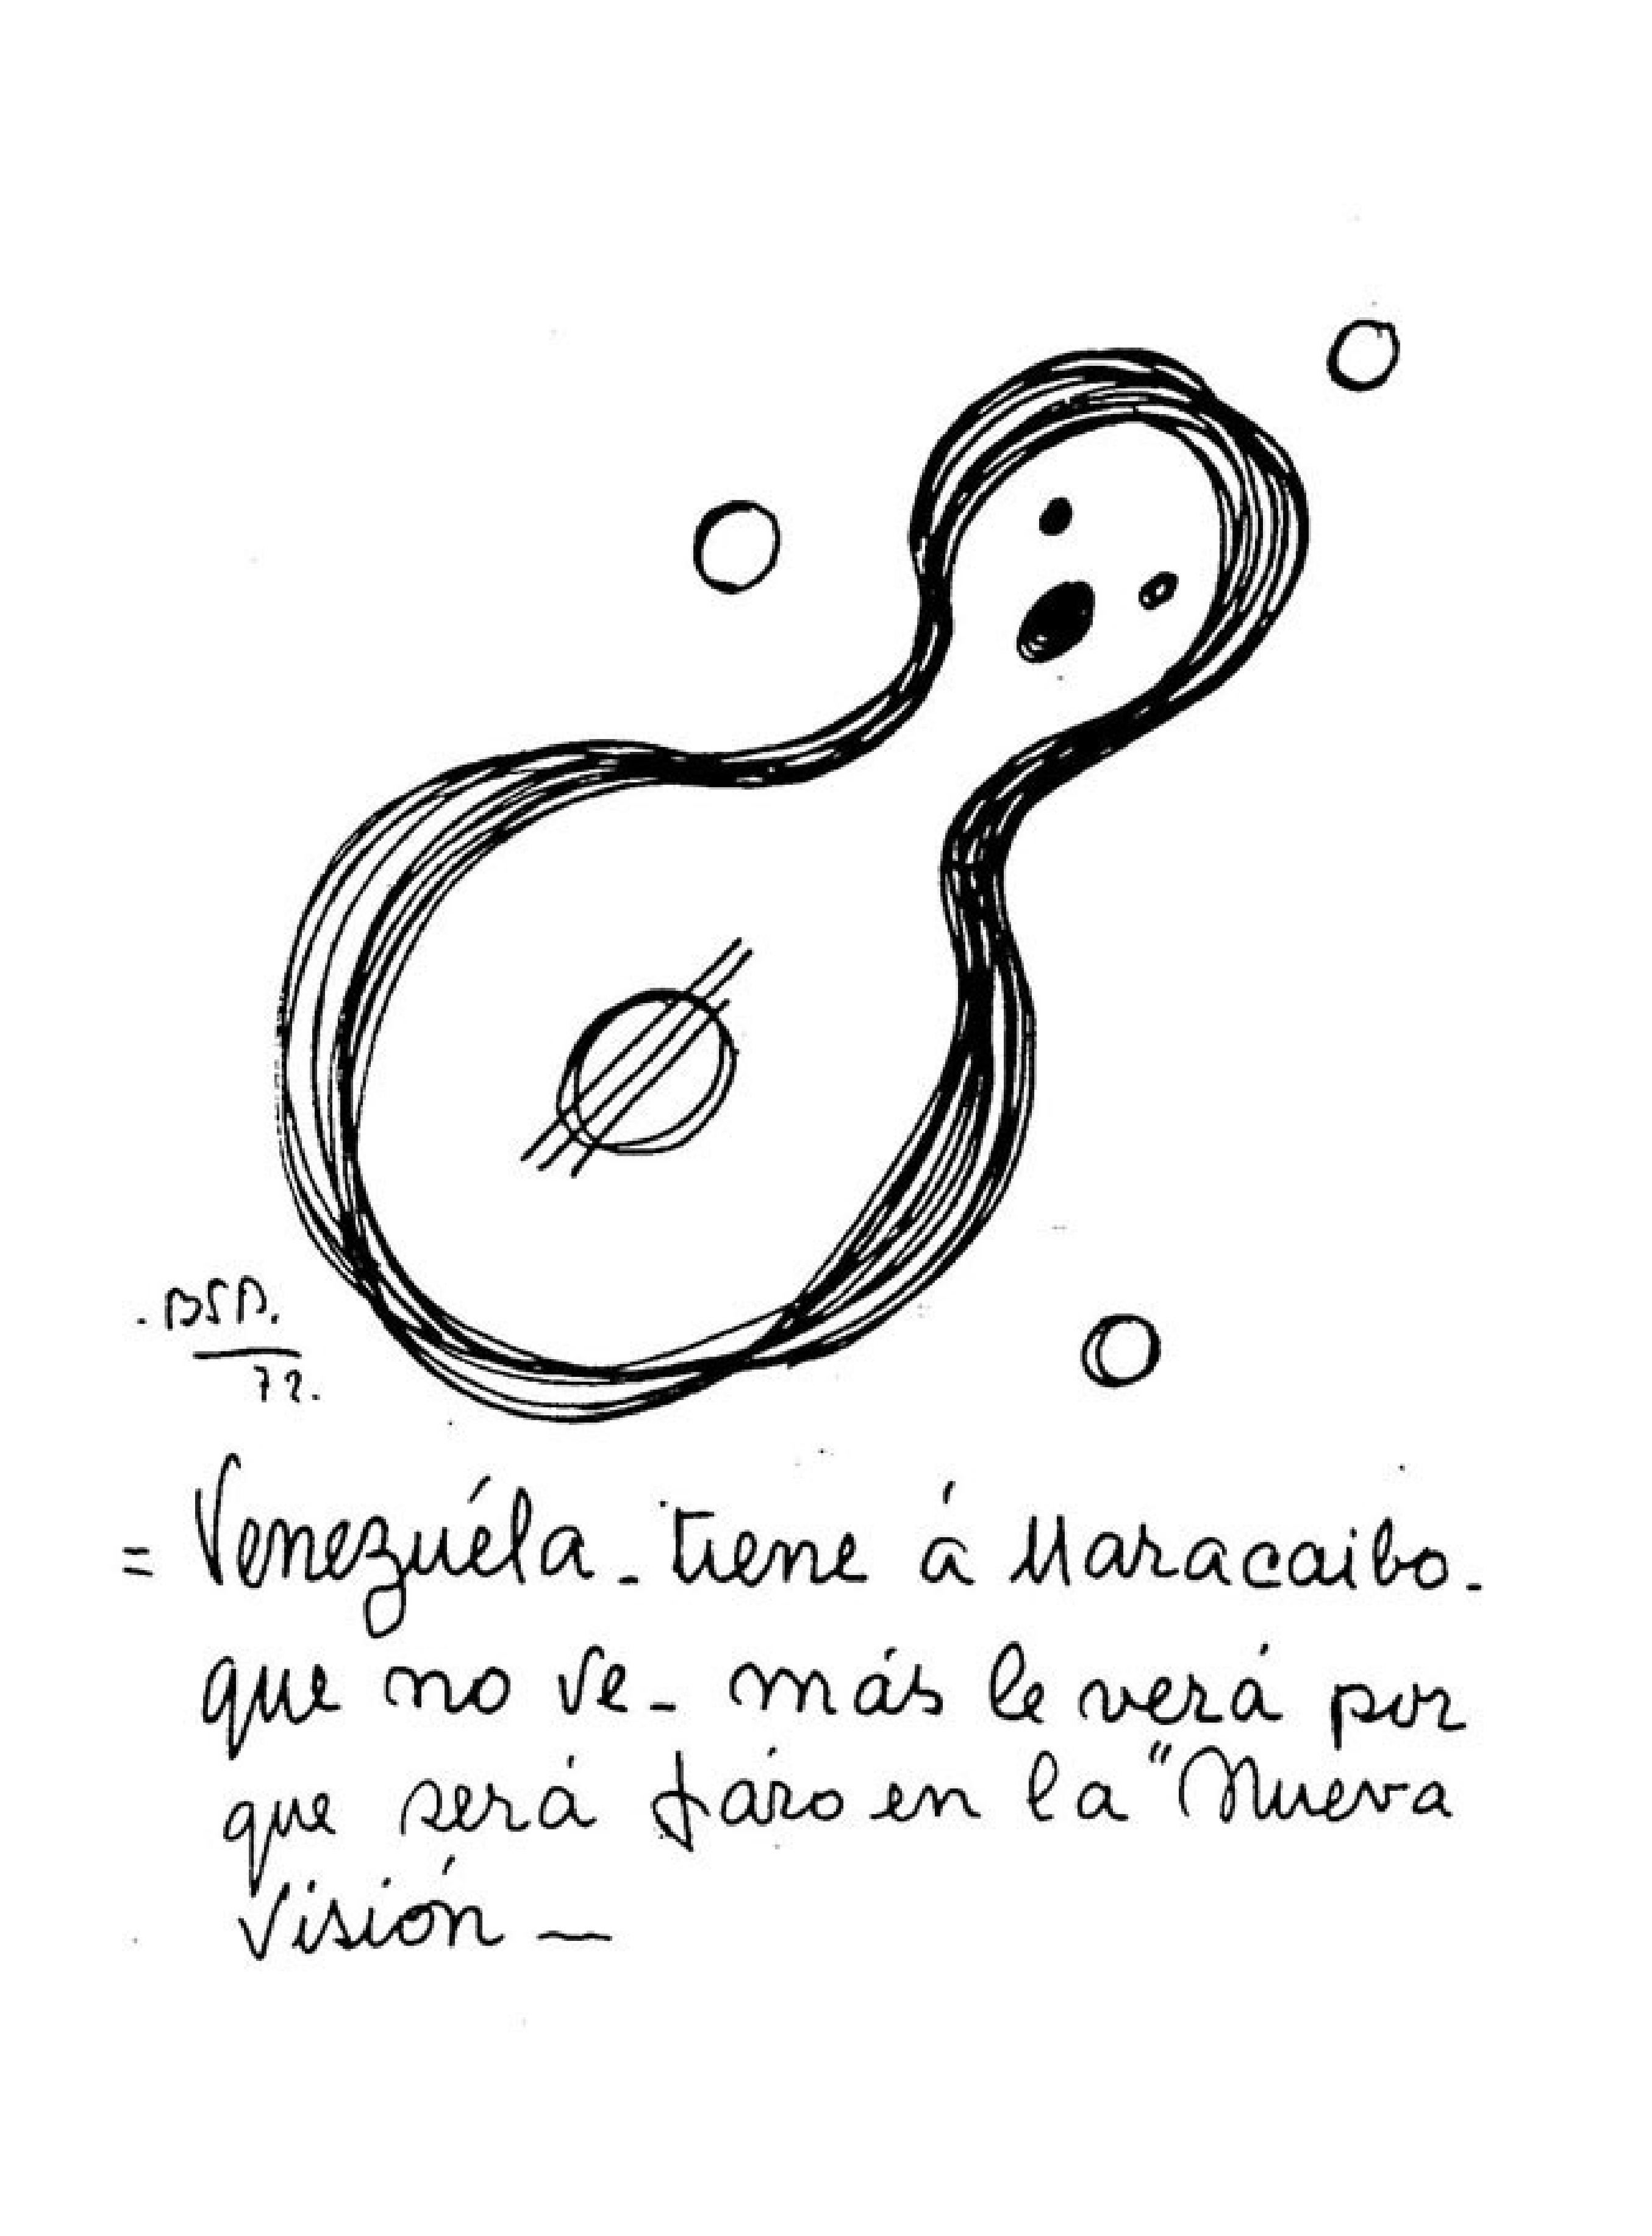 . BSP.
72.
= Venezuéla - tiene á Maracaibo -
que no ve - más le verá por
que será fáro en la "Nueva
Visión —